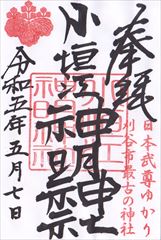 奉拝
日本武尊ゆかり
刈谷市最古の神社
小垣江神明神社
令和五年五月七日